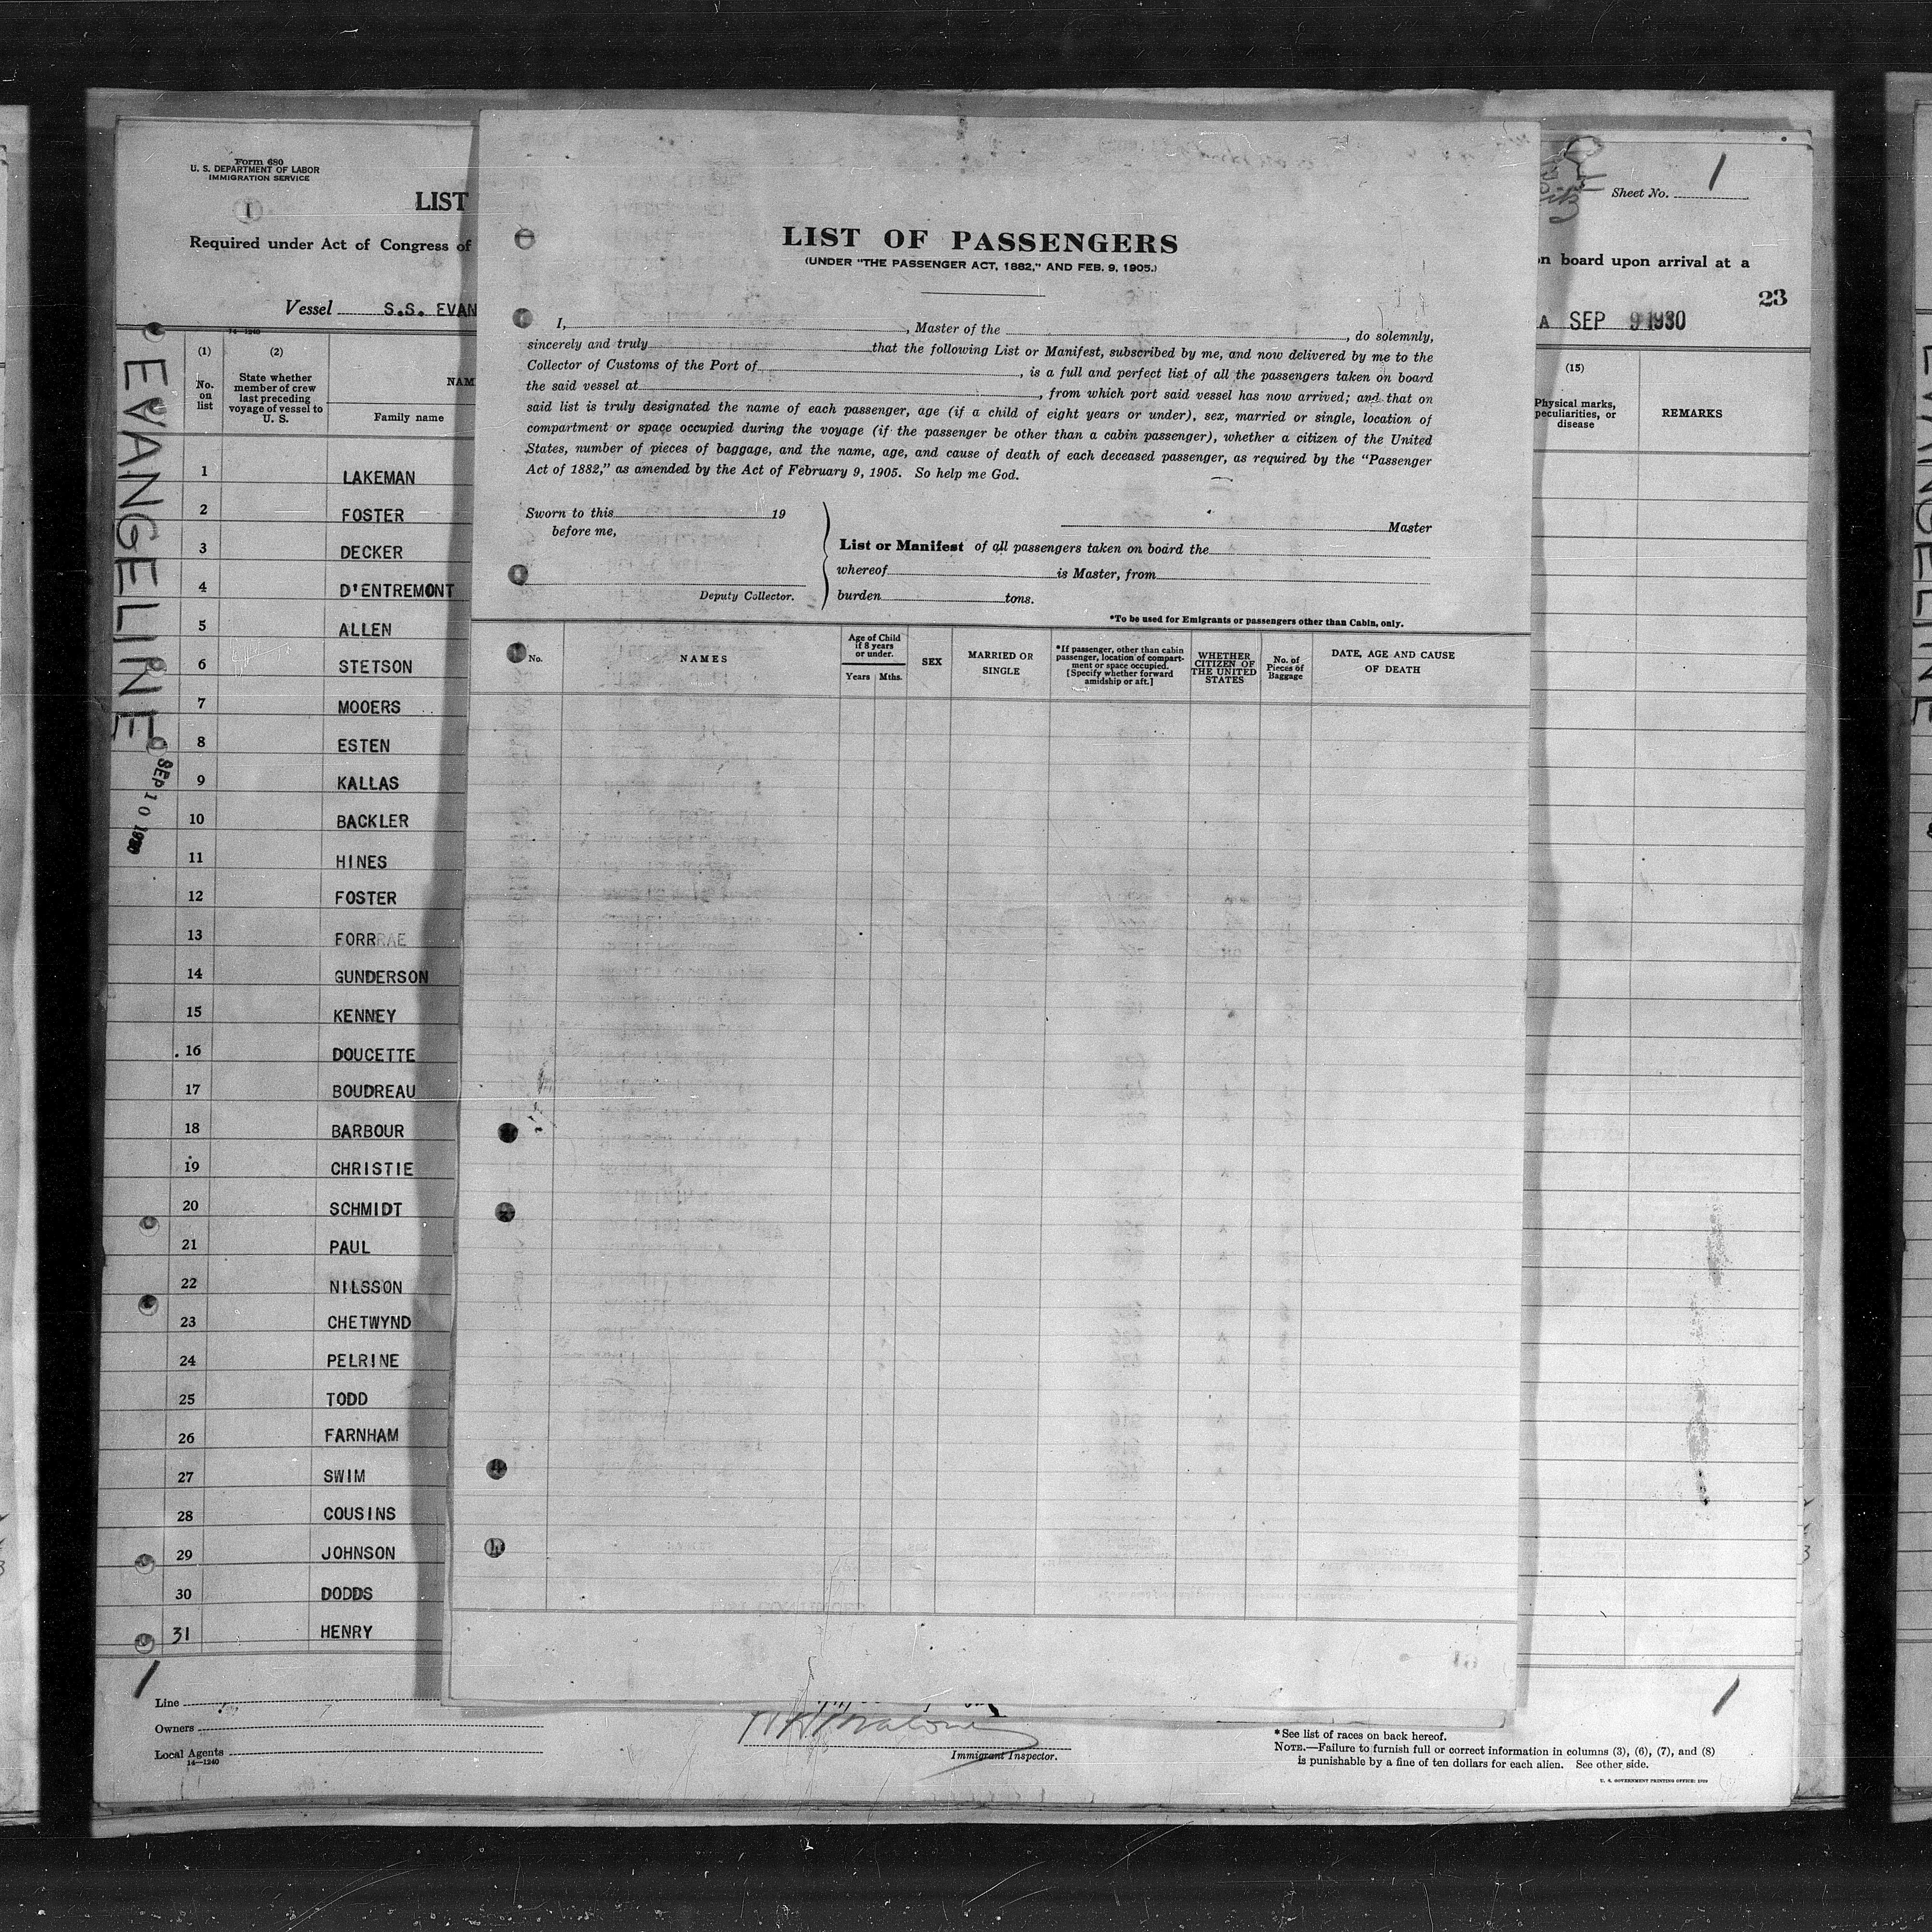 Form 680
U. S. DEPARTMENT OF LABOR
IMMIGRATION SERVICE
1
LIST
Required under Act of Congress of
Vessel S.S. EVAN
14-1240
(1)
No.
on
list
(2)
State whether
member of crew
last preceding
voyage of vessel to
U. S.
NAM
Family name
1 LAKEMAN
2 FOSTER
3 DECKER
4 D'ENTREMONT
5 ALLEN
6 STETSON
7 MOOERS
8 ESTEN
9 KALLAS
10 BACKLER
11 HINES
12 FOSTER
13 FORRRAE
14 GUNDERSON
15 KENNEY
16 DOUCETTE
17 BOUDREAU
18 BARBOUR
19 CHRISTIE
20 SCHMIDT
21 PAUL
22 NILSSON
23 CHETWYND
24 PELRINE
25 TODD
26 FARNHAM
27 SWIM
28 COUSINS
29 JOHNSON
30 DODDS
31 HENRY
EVANGELINE
SEP 10 1930
1
Line
Owners
Local Agents
14-1240
LIST OF PASSENGERS
(UNDER "THE PASSENGER ACT, 1882," AND FEB. 9, 1905.)
I, , Master of the , do solemnly,
sincerely and truly that the following List or Manifest, subscribed by me, and now delivered by me to the
Collector of Customs of the Port of , is a full and perfect list of all the passengers taken on board
the said vessel at , from which port said vessel has now arrived; and that on
said list is truly designated the name of each passenger, age (if a child of eight years or under), sex, married or single, location of
compartment or space occupied during the voyage (if the passenger be other than a cabin passenger), whether a citizen of the United
States, number of pieces of baggage, and the name, age, and cause of death of each deceased passenger, as required by the "Passenger
Act of 1882," as amended by the Act of February 9, 1905. So help me God.
Sworn to this 19
before me,
Deputy Collector.
Master
List or Manifest of all passengers taken on board the
whereof is Master, from
burden tons.
*To be used for Emigrants or passengers other than Cabin, only.
No.
NAMES
Age of Child
if 8 years
or under.
Years Mths.
SEX
MARRIED OR
SINGLE
*If passenger, other than cabin
passenger, location of compart-
ment or space occupied.
[Specify whether forward
amidship or aft.]
WHETHER
CITIZEN OF
THE UNITED
STATES
No. of
Pieces of
Baggage
DATE, AGE AND CAUSE
OF DEATH
Sheet No. 1
on board upon arrival at a
23
A SEP 9 1930
(15)
Physical marks,
peculiarities, or
disease
REMARKS
Immigrant Inspector.
1
*See list of races on back hereof.
NOTE.—Failure to furnish full or correct information in columns (3), (6), (7), and (8)
is punishable by a fine of ten dollars for each alien. See other side.
U. S. GOVERNMENT PRINTING OFFICE: 1929
EVANGELINE